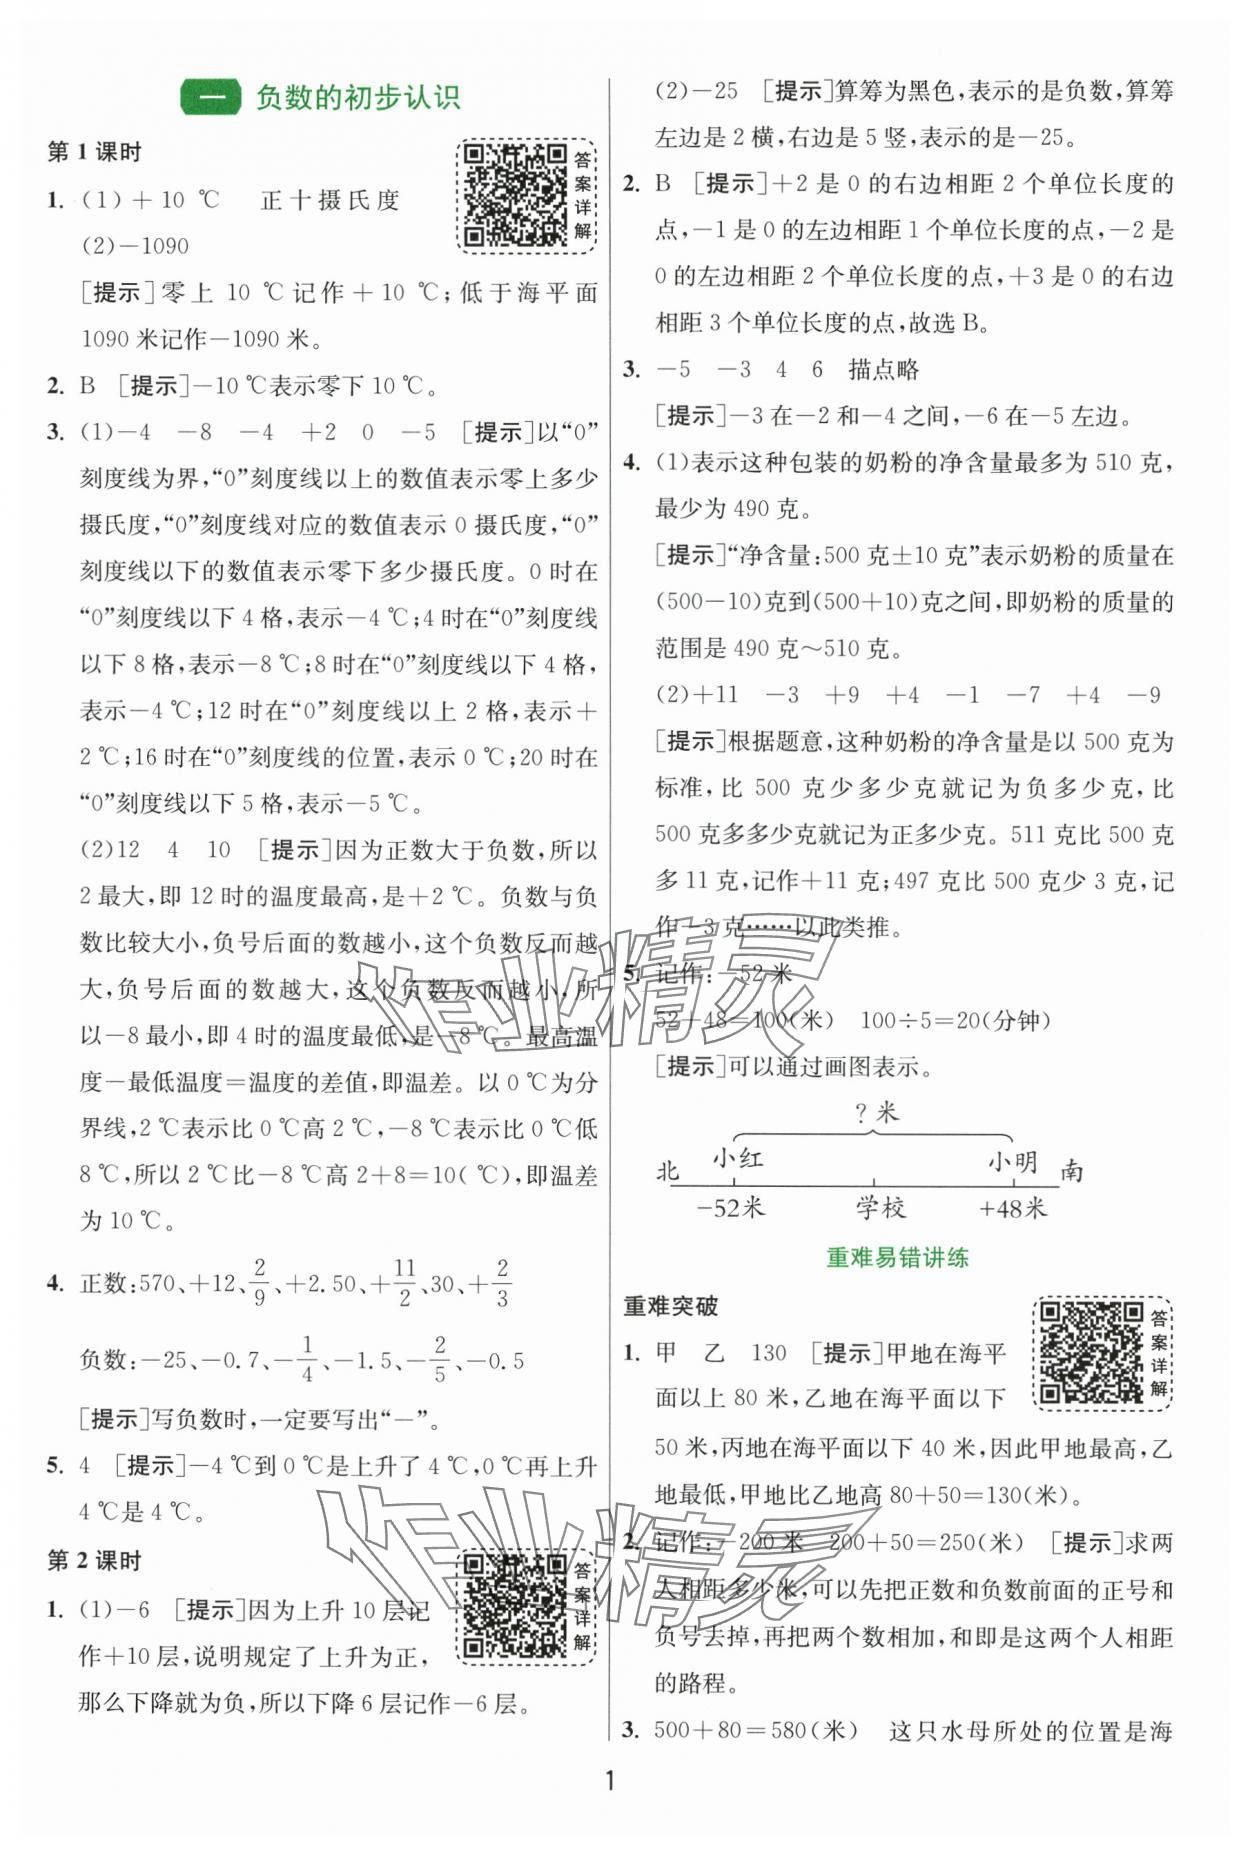 一 负数的初步认识
第1课时
答案详解
1. (1)+10 ℃ 正十摄氏度
(2)-1090
[提示]零上 10 ℃记作+10 ℃;低于海平面
1090米记作-1090米。
2. B [提示]-10 ℃表示零下10 ℃。
3. (1)-4 -8 -4 +2 0 -5 [提示]以“0”
刻度线为界,“0”刻度线以上的数值表示零上多少
摄氏度,“0”刻度线对应的数值表示 0 摄氏度,“0”
刻度线以下的数值表示零下多少摄氏度。0 时在
“0”刻度线以下4格,表示-4 ℃;4时在“0”刻度线
以下8格,表示-8 ℃;8时在“0”刻度线以下4格,
表示-4 ℃;12时在“0”刻度线以上2格,表示+
2 ℃;16时在“0”刻度线的位置,表示0 ℃;20时在
“0”刻度线以下5格,表示-5 ℃。
(2)12 4 10 [提示]因为正数大于负数,所以
2最大,即12时的温度最高,是+2 ℃。负数与负
数比较大小,负号后面的数越小,这个负数反而越
大,负号后面的数越大,这个负数反而越小,所
以-8最小,即4时的温度最低,是-8 ℃。最高温
度-最低温度=温度的差值,即温差。以0 ℃为分
界线,2 ℃表示比0 ℃高2 ℃,-8 ℃表示比0 ℃低
8 ℃,所以2 ℃比-8 ℃高2+8=10(℃),即温差
为10 ℃。
4. 正数:570、+12、2/9、+2.50、+11/2、30、+2/3
负数:-25、-0.7、-1/4、-1.5、-2/5、-0.5
[提示]写负数时,一定要写出“-”。
5. 4 [提示]-4 ℃到0 ℃是上升了4 ℃,0 ℃再上升
4 ℃是4 ℃。
第2课时
答案详解
1. (1)-6 [提示]因为上升10层记
作+10层,说明规定了上升为正,
那么下降就为负,所以下降6层记作-6层。
(2)-25 [提示]算筹为黑色,表示的是负数,算筹
左边是2横,右边是5竖,表示的是-25。
2. B [提示]+2是0的右边相距2个单位长度的
点,-1是0的左边相距1个单位长度的点,-2是
0的左边相距2个单位长度的点,+3是0的右边
相距3个单位长度的点,故选B。
3. -5 -3 4 6 描点略
[提示]-3在-2和-4之间,-6在-5左边。
4. (1)表示这种包装的奶粉的净含量最多为510克,
最少为490克。
[提示]“净含量:500克±10克”表示奶粉的质量在
(500-10)克到(500+10)克之间,即奶粉的质量的
范围是490克~510克。
(2)+11 -3 +9 +4 -1 -7 +4 -9
[提示]根据题意,这种奶粉的净含量是以500克为
标准,比 500 克少多少克就记为负多少克,比
500克多多少克就记为正多少克。511克比500克
多11克,记作+11克;497克比500克少3克,记
作-3克……以此类推。
5. 记作:-52米
52+48=100(米) 100÷5=20(分钟)
[提示]可以通过画图表示。
?米
北 小红 小明 南
-52米 学校 +48米
重难易错讲练
重难突破
答案详解
1. 甲 乙 130 [提示]甲地在海平
面以上80米,乙地在海平面以下
50米,丙地在海平面以下40米,因此甲地最高,乙
地最低,甲地比乙地高80+50=130(米)。
2. 记作:-200米 200+50=250(米) [提示]求两
人相距多少米,可以先把正数和负数前面的正号和
负号去掉,再把两个数相加,和即是这两个人相距
的路程。
3. 500+80=580(米) 这只水母所处的位置是海
1
作业精灵
作业精灵